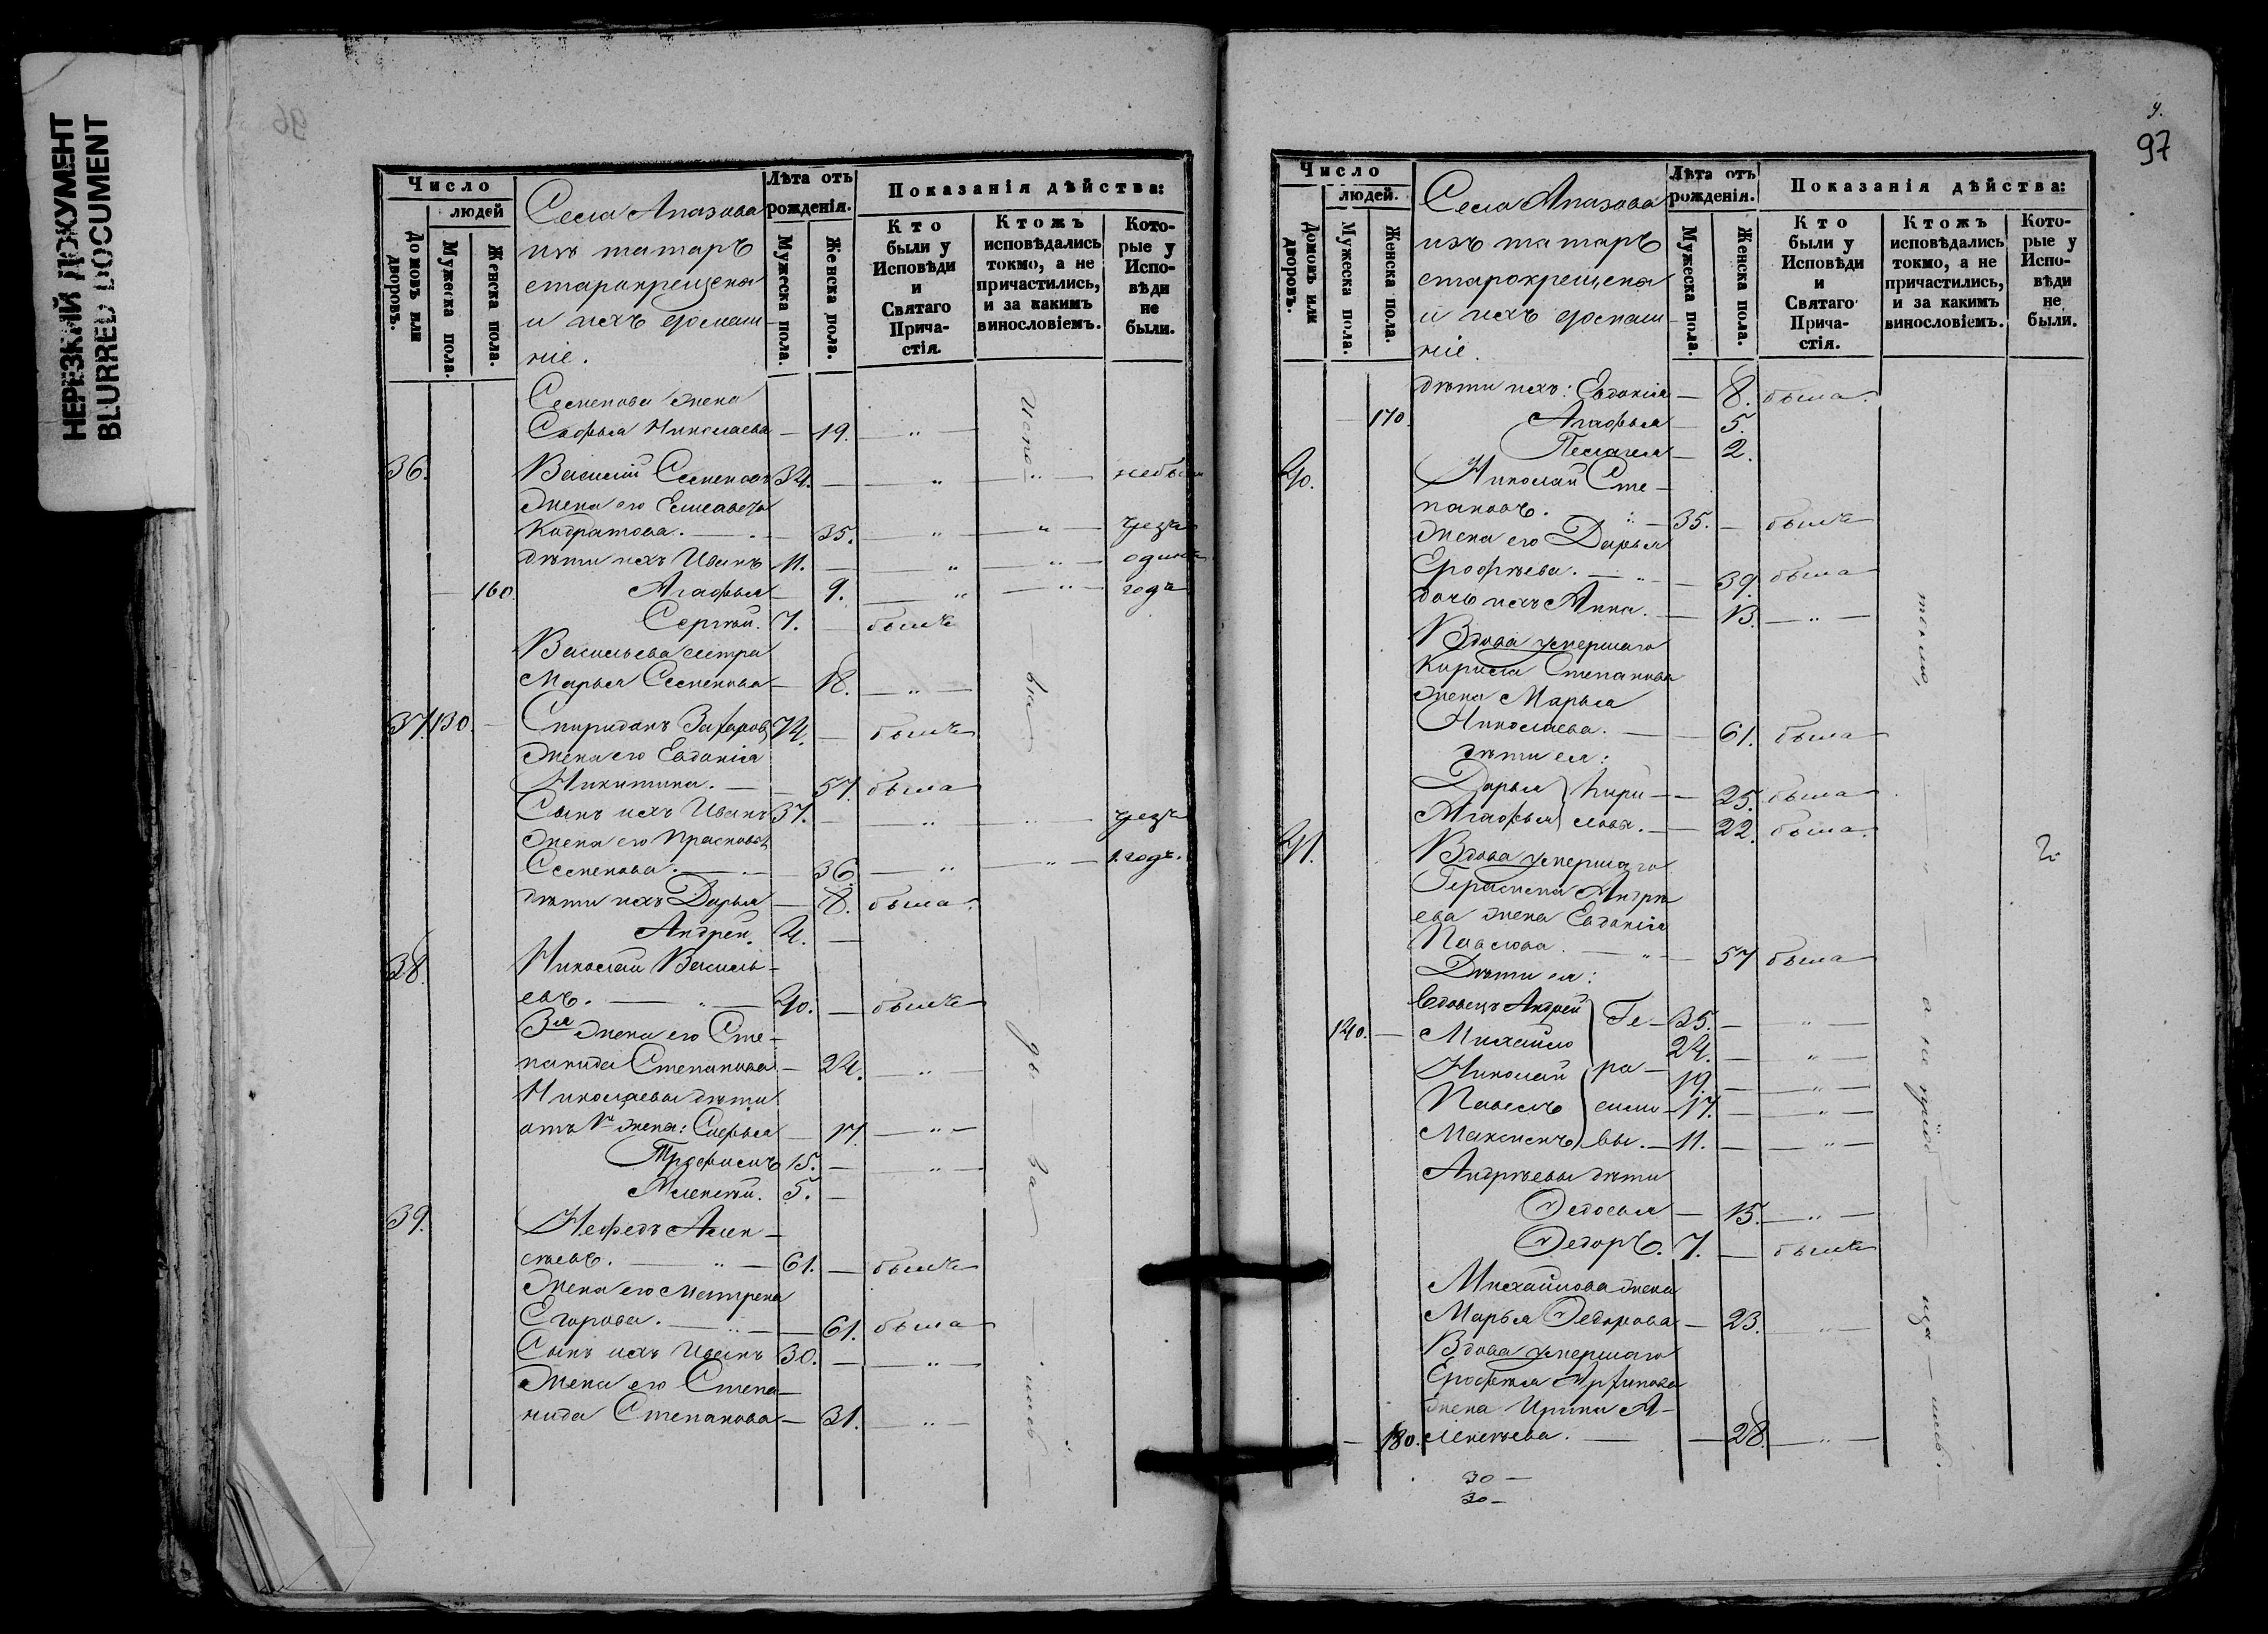 НЕРЕЗКИЙ ДОКУМЕНТ
BLURRED DOCUMENT
96
Число
людей
Домовъ или дворовъ.
Мужеска пола.
Женска пола.
Села Апазова
изъ татаръ
старокрещены
и ихъ домаш-
ніе.
Лѣта отъ рожденія.
Мужеска пола.
Женска пола.
Показанія дѣйства:
Кто были у Исповѣди и Святаго Прича-стія.
Ктожъ исповѣдались токмо, а не причастились, и за какимъ винословіемъ.
Кото-рые у Испо-вѣди не были.
Семенова жена
Софья Николаева — 19. — „
36. Василій Семеновъ 34. — — „ — „ — небыли
Жена его Елисавета
Кодратова. — 35. — „ — „ — чрезъ
дѣти ихъ Иванъ 11. — — „ — „ — одинъ
160. Агафья — 9. — „ — „ — годъ
Сергѣй. 7. — былъ
Васильева сестра
Марья Семенова — 18. — „ —
37. 130. — Спиридонъ Захаровъ 74. — былъ
Жена его Евдокія
Никитина. — — 57. была
Сынъ ихъ Иванъ 37. — „ — „ — чрезъ
Жена его Прасковья
Семенова. — — 36. — „ — „ — 1. годъ.
дѣти ихъ Дарья — 8. была.
Андрей. 4. —
38. Николай Василь-
евъ. — „ — 40. — былъ
3я жена его Сте-
панида Степанова — 24. — „ —
Николаевы дѣти
отъ 1й жены: Софья — 17. — „ —
Трофимъ 15. — — „ —
Алексѣй. 5. —
39. Нефедъ Алек-
сѣевъ. — „ — 61. — былъ
Жена его Матрена
Егорова. — „ — — 61. была
Сынъ ихъ Иванъ 30. — — „ —
Жена его Степа-
нида Степанова — 31. — „ —
97
Число
людей.
Домовъ или дворовъ.
Мужеска пола.
Женска пола.
Села Апазова
изъ татаръ
старокрещены
и ихъ домаш-
ніе.
Лѣта отъ рожденія.
Мужеска пола.
Женска пола.
Показанія дѣйства:
Кто были у Исповѣди и Святаго Прича-стія.
Ктожъ исповѣдались токмо, а не причастились, и за какимъ винословіемъ.
Кото-рые у Испо-вѣди не были.
дѣти ихъ: Евдокія — 8. была.
— 170. Агафья — 5.
Пелагея — 2.
40. Николай Сте-
пановъ. — 35. — былъ
Жена его Дарья
Ерофѣева. — „ — — 39. была
дочь ихъ Анна. — 13. — „ —
Вдова умершаго
Кирила Степанова
жена Марья
Николаева. — — 61. была
дѣти ея:
Дарья } Кири — — 25. была
Агафья } лова. — — 22. была.
41. Вдова умершаго
Герасима Андрѣ
ева жена Евдокія
Павлова. — „ — 57 была
Дѣти ея:
Вдовецъ Андрей } Ге — 35. — — „ —
140. — Михайло 24. — — „ —
Николай } ра — 19. — — „ —
Павелъ } симо — 17. — — „ —
Максимъ } вы. — 11. — — „ —
Андрѣевы дѣти
Ѳедосья — 15. — „ —
Ѳедоръ. 7. — былъ
Михайлова жена
Марья Ѳедорова — 23. — „ —
Вдова умершаго
Ерофѣя Архипова
жена Ирина А-
— 180. лексѣева. — — 28. — „ —
30 —
30 —